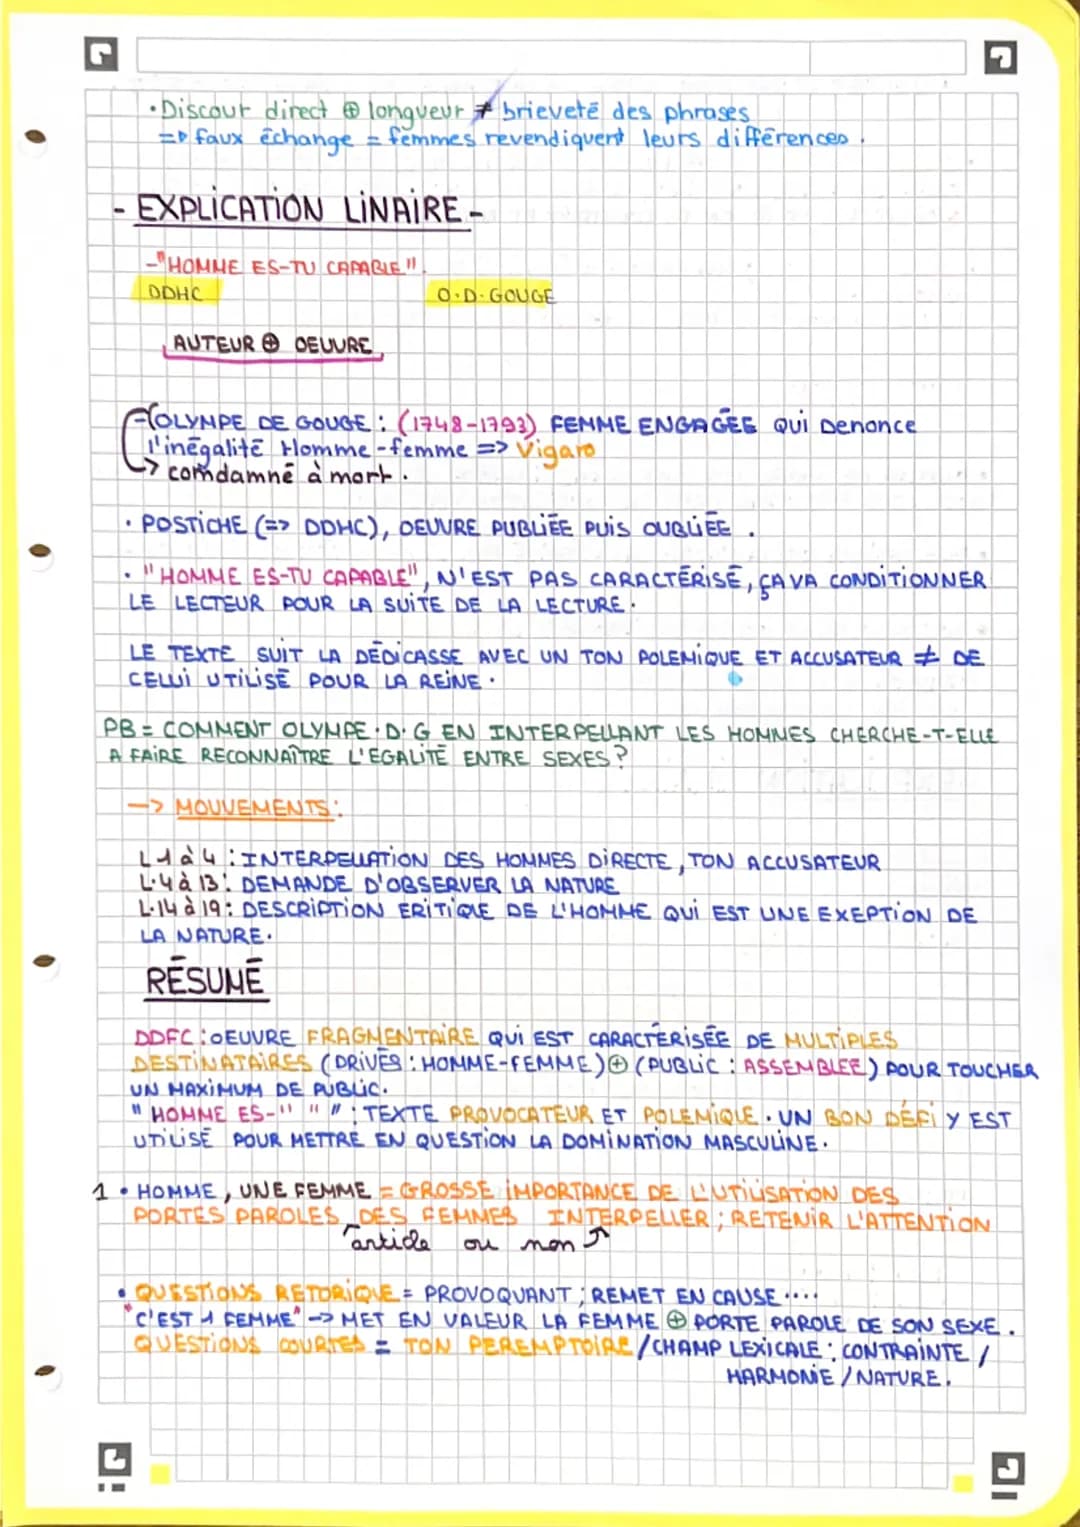 • Discour direct ⊕ longueur ≠ brieveté des phrases
=> faux échange = femmes revendiquent leurs différences.
- EXPLICATION LINAIRE -
- "HOMME ES-TU CAPABLE".
DDHC O.D.GOUGE
AUTEUR ⊕ OEUVRE
- OLYMPE DE GOUGE : (1748-1793) FEMME ENGAGÉE QUI DENONCE
l'inégalité Homme-femme => Vigaro
-> comdamné à mort.
• POSTICHE (=> DDHC), OEUVRE PUBLIÉE PUIS OUBLIÉE.
• "HOMME ES-TU CAPABLE", N'EST PAS CARACTÉRISÉ, ÇA VA CONDITIONNER
LE LECTEUR POUR LA SUITE DE LA LECTURE.
LE TEXTE SUIT LA DÉDICASSE AVEC UN TON POLEMIQUE ET ACCUSATEUR ≠ DE
CELUI UTILISÉ POUR LA REINE.
PB = COMMENT OLYMPE.D.G EN INTERPELLANT LES HOMMES CHERCHE-T-ELLE
A FAIRE RECONNAÎTRE L'EGALITÉ ENTRE SEXES ?
-> MOUVEMENTS :
L1 à 4 : INTERPELLATION DES HOMMES DIRECTE, TON ACCUSATEUR
L.4 à 13 : DEMANDE D'OBSERVER LA NATURE
L.14 à 19 : DESCRIPTION ERITIQUE DE L'HOMME QUI EST UNE EXEPTION DE
LA NATURE.
RÉSUMÉ
DDFC : OEUVRE FRAGMENTAIRE QUI EST CARACTÉRISÉE DE MULTIPLES
DESTINATAIRES (PRIVÉS : HOMME-FEMME) ⊕ (PUBLIC : ASSEMBLEE) POUR TOUCHER
UN MAXIMUM DE PUBLIC.
" HOMME ES-" " " : TEXTE PROVOCATEUR ET POLEMIQUE. UN BON DÉFI Y EST
UTILISÉ POUR METTRE EN QUESTION LA DOMINATION MASCULINE.
1 • HOMME, UNE FEMME = GROSSE IMPORTANCE DE L'UTILISATION DES
PORTES PAROLES DES FEMMES INTERPELLER ; RETENIR L'ATTENTION
article ou non
• QUESTIONS RETORIQUE = PROVOQUANT ; REMET EN CAUSE....
"C'EST 1 FEMME" -> MET EN VALEUR LA FEMME ⊕ PORTE PAROLE DE SON SEXE.
QUESTIONS COURTES = TON PEREMPTOIRE / CHAMP LEXICALE : CONTRAINTE /
HARMONIE / NATURE.